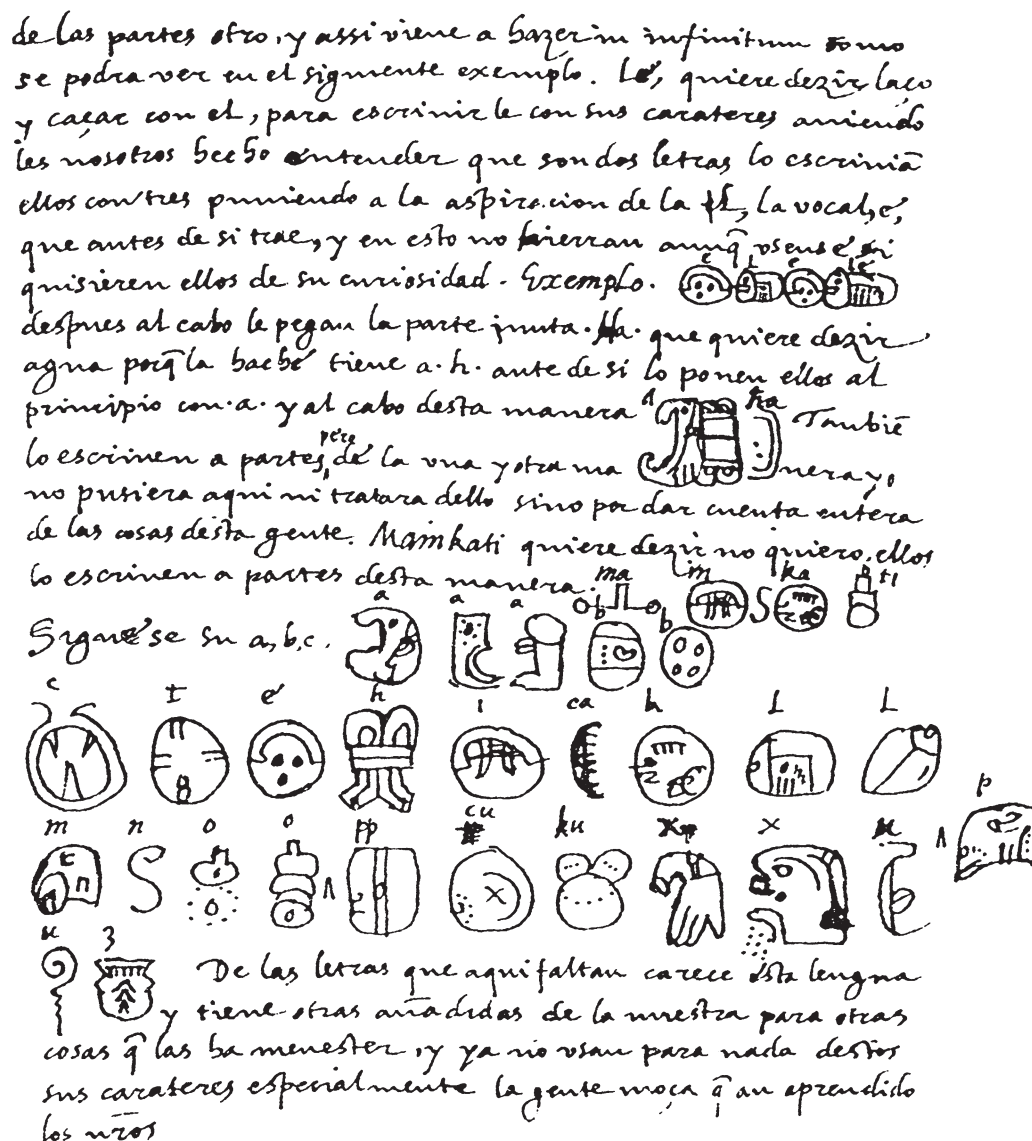 de las partes otro, y assi viene a hazer in infinitum como
se podra ver en el siguiente exemplo. Lé, quiere dezir laço
y caçar con el, para escrivir le con sus carateres aviendo
les nosotros hecho entender que son dos letras lo escrivian̄
ellos con tres puniendo a la aspiracion de la L, la vocal, é,
que antes de si trae, y en esto no hierran aunq̄ usense si
quisieren ellos de su curiosidad. Exemplo. e L e lé
despues al cabo le pegan la parte junta. Ha. que quiere dezir
agua porq̄ la hache tiene a. h. ante de si lo ponen ellos al
principio con. a. y al cabo desta manera a ha Tambiē
lo escriven a partes, pero de la una y otra ma nera yo
no pusiera aqui ni tratara dello sino por dar cuenta entera
de las cosas desta gente. Mainkati quiere dezir no quiero, ellos
lo escriven a partes desta manera. ma in ka ti
Siguese su a, b, c. a a a b b
c T é h i ca k L L
m n o o pp cu ku x x u p
u z De las letras que aqui faltan carece esta lengua
y tiene otras añadidas de la nuestra para otras
cosas q̄ las ha menester, y ya no usan para nada destos
sus carateres especialmente la gente moça q̄ an aprendido
los nr̄os